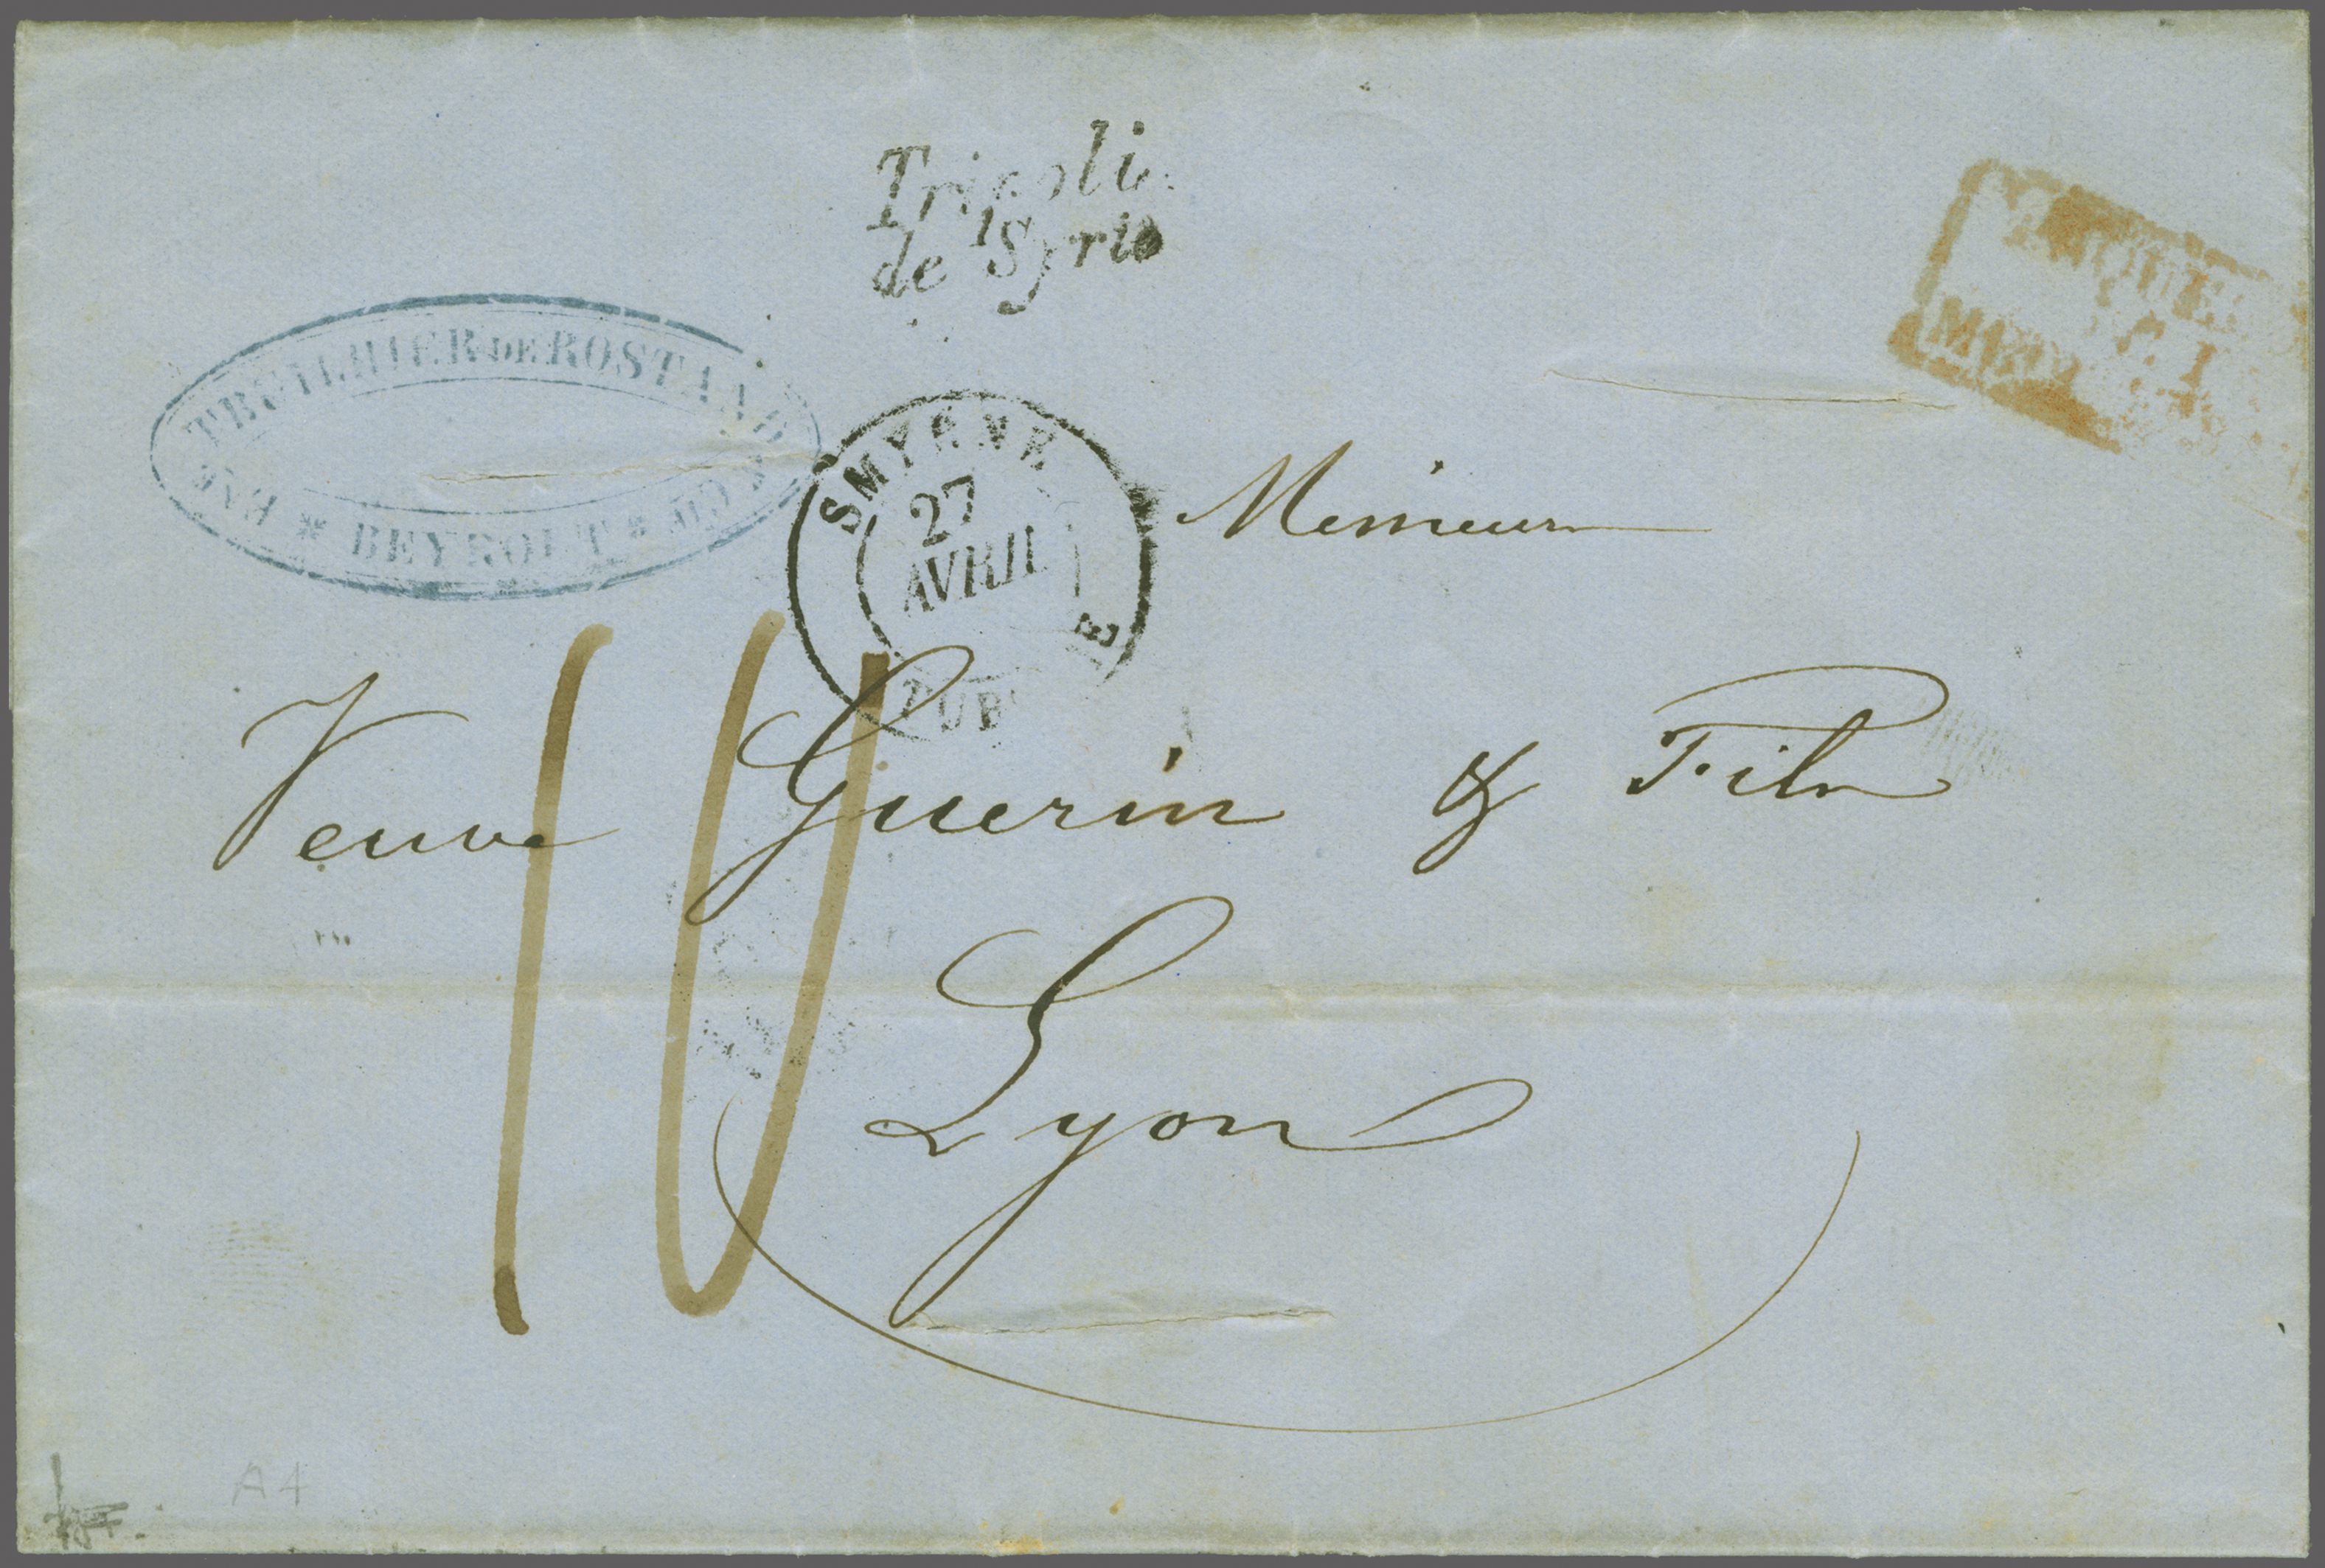 Tripoli
de Syrie
TREILHIER DE ROSTAAND
* BEYROUT *
SMYRNE
27
AVRIL
Messieurs
Veuve Guerin & Fils
10
Lyon
A4